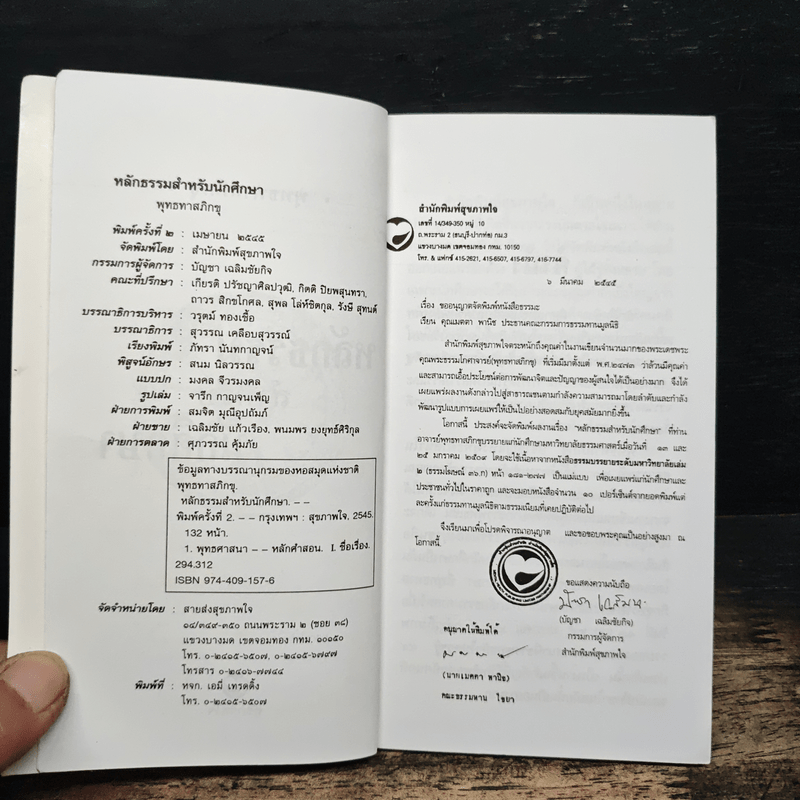 หลักธรรมสำหรับนักศึกษา
พุทธทาสภิกขุ
พิมพ์ครั้งที่ ๒ : เมษายน ๒๕๔๕
จัดพิมพ์โดย : สำนักพิมพ์สุขภาพใจ
กรรมการผู้จัดการ : บัญชา เฉลิมชัยกิจ
คณะที่ปรึกษา : เกียรติ ปรัชญาศิลปวุฒิ, กิตติ ปิยพสุนทรา,
ถาวร สิกขโกศล, สุพล โล่ห์ชิตกุล, รังษี สุทนต์
บรรณาธิการบริหาร : วรุตม์ ทองเชื้อ
บรรณาธิการ : สุวรรณ เคลือบสุวรรณ์
เรียงพิมพ์ : ภัทรา นันทกาญจน์
พิสูจน์อักษร : สนม นิลวรรณ
แบบปก : มงคล จีวรมงคล
รูปเล่ม : จารึก กาญจนเพ็ญ
ฝ่ายการพิมพ์ : สมจิต มุณีอุปถัมภ์
ฝ่ายขาย : เฉลิมชัย แก้วเรือง, พนมพร ยงยุทธ์ศิริกุล
ฝ่ายการตลาด : ศุภวรรณ คุ้มภัย
ข้อมูลทางบรรณานุกรมของหอสมุดแห่งชาติ
พุทธทาสภิกขุ.
หลักธรรมสำหรับนักศึกษา. – –
พิมพ์ครั้งที่ 2. – – กรุงเทพฯ : สุขภาพใจ, 2545.
132 หน้า.
1. พุทธศาสนา – – หลักคำสอน. I. ชื่อเรื่อง.
294.312
ISBN 974-409-157-6
จัดจำหน่ายโดย : สายส่งสุขภาพใจ
๑๔/๓๔๙-๓๕๐ ถนนพระราม ๒ (ซอย ๓๘)
แขวงบางมด เขตจอมทอง กทม. ๑๐๑๕๐
โทร. ๐-๒๔๑๕-๖๕๐๗, ๐-๒๔๑๕-๖๗๙๗
โทรสาร ๐-๒๔๑๖-๗๗๔๔
พิมพ์ที่ : หจก. เอมี่ เทรดดิ้ง
โทร. ๐-๒๔๑๕-๖๕๐๗
สำนักพิมพ์สุขภาพใจ
เลขที่ 14/349-350 หมู่ 10
ถ.พระราม 2 (ธนบุรี-ปากท่อ) กม.3
แขวงบางมด เขตจอมทอง กทม. 10150
โทร. & แฟกซ์ 415-2621, 415-6507, 415-6797, 416-7744
๖ มีนาคม ๒๕๔๕
เรื่อง ขออนุญาตจัดพิมพ์หนังสือธรรมะ
เรียน คุณเมตตา พานิช ประธานคณะกรรมการธรรมทานมูลนิธิ
สำนักพิมพ์สุขภาพใจตระหนักถึงคุณค่าในงานเขียนจำนวนมากของพระเดชพระ
คุณพระธรรมโกศาจารย์(พุทธทาสภิกขุ) ที่เริ่มมีมาตั้งแต่ พ.ศ.๒๔๗๓ ว่าล้วนมีคุณค่า
และสามารถเอื้อประโยชน์ต่อการพัฒนาจิตและปัญญาของผู้สนใจได้เป็นอย่างมาก จึงได้
เผยแพร่ผลงานดังกล่าวไปสู่สาธารณชนตามกำลังความสามารถมาโดยลำดับและกำลัง
พัฒนารูปแบบการเผยแพร่ให้เป็นไปอย่างสอดคล้องกับยุคสมัยมากยิ่งขึ้น
โอกาสนี้ ประสงค์จะจัดพิมพ์ผลงานเรื่อง "หลักธรรมสำหรับนักศึกษา" ที่ท่าน
อาจารย์พุทธทาสภิกขุบรรยายแก่นักศึกษามหาวิทยาลัยธรรมศาสตร์เมื่อวันที่ ๑๓ และ
๒๕ มกราคม ๒๕๐๙ โดยจะใช้เนื้อหาจากหนังสือธรรมบรรยายระดับมหาวิทยาลัยเล่ม
๒ (ธรรมโฆษณ์ ๓๖.ก) หน้า ๑๘๑-๒๗๗ เป็นแม่แบบ เพื่อเผยแพร่แก่นักศึกษาและ
ประชาชนทั่วไปในราคาถูก และจะมอบหนังสือจำนวน ๑๐ เปอร์เซ็นต์จากยอดพิมพ์แต่
ละครั้งแก่ธรรมทานมูลนิธิตามธรรมเนียมที่เคยปฏิบัติต่อไป
จึงเรียนมาเพื่อโปรดพิจารณาอนุญาต และขอขอบพระคุณเป็นอย่างสูงมา ณ
โอกาสนี้.
ขอแสดงความนับถือ
(บัญชา เฉลิมชัยกิจ)
กรรมการผู้จัดการ
สำนักพิมพ์สุขภาพใจ
อนุญาตให้พิมพ์ได้
(นายเมตตา พานิช)
คณะธรรมทาน ไชยา